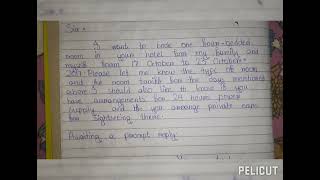 Sir,
I want to book one four-bedded
room in your hotel for my family and
myself from 17 October to 23rd October
Please let me know the type of room
and the room tariff for the days mentioned
above. I should also like to know if you
have arrangements for 24 hours power
supply and do you arrange private cars
for sightseeing there.
Awaiting a prompt reply.
PELICUT